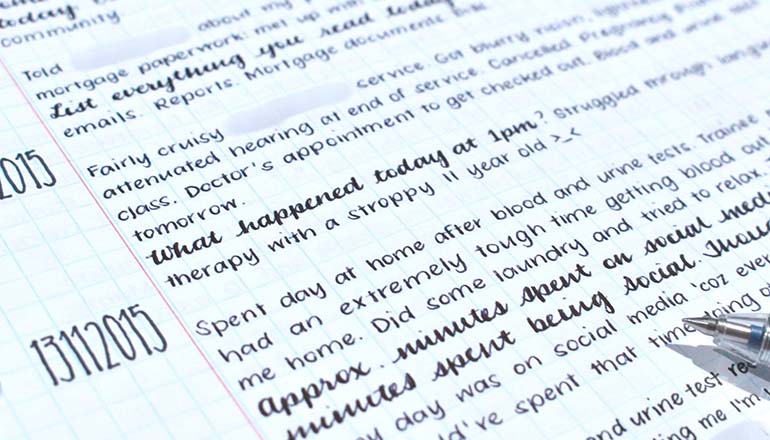 today.
community about my
Told
mortgage paperwork: met up with
List everything you read today
emails. Reports. Mortgage documents.
2015
Fairly cruisy service. Got blurry vision,
attenuated hearing at end of service. Cancelled Pregnancy
class. Doctor's appointment to get checked out. Blood and urine
tomorrow.
What happened today at 1pm? Struggled through language
therapy with a stroppy 11 year old >_<
13112015
Spent day at home after blood and urine tests. Trainee
had an extremely tough time getting blood out
me home. Did some laundry and tried to relax.
approx. minutes spent on social media
minutes spent being social.
day was on social media 'coz
I've spent that time doing
and urine test
me I'm